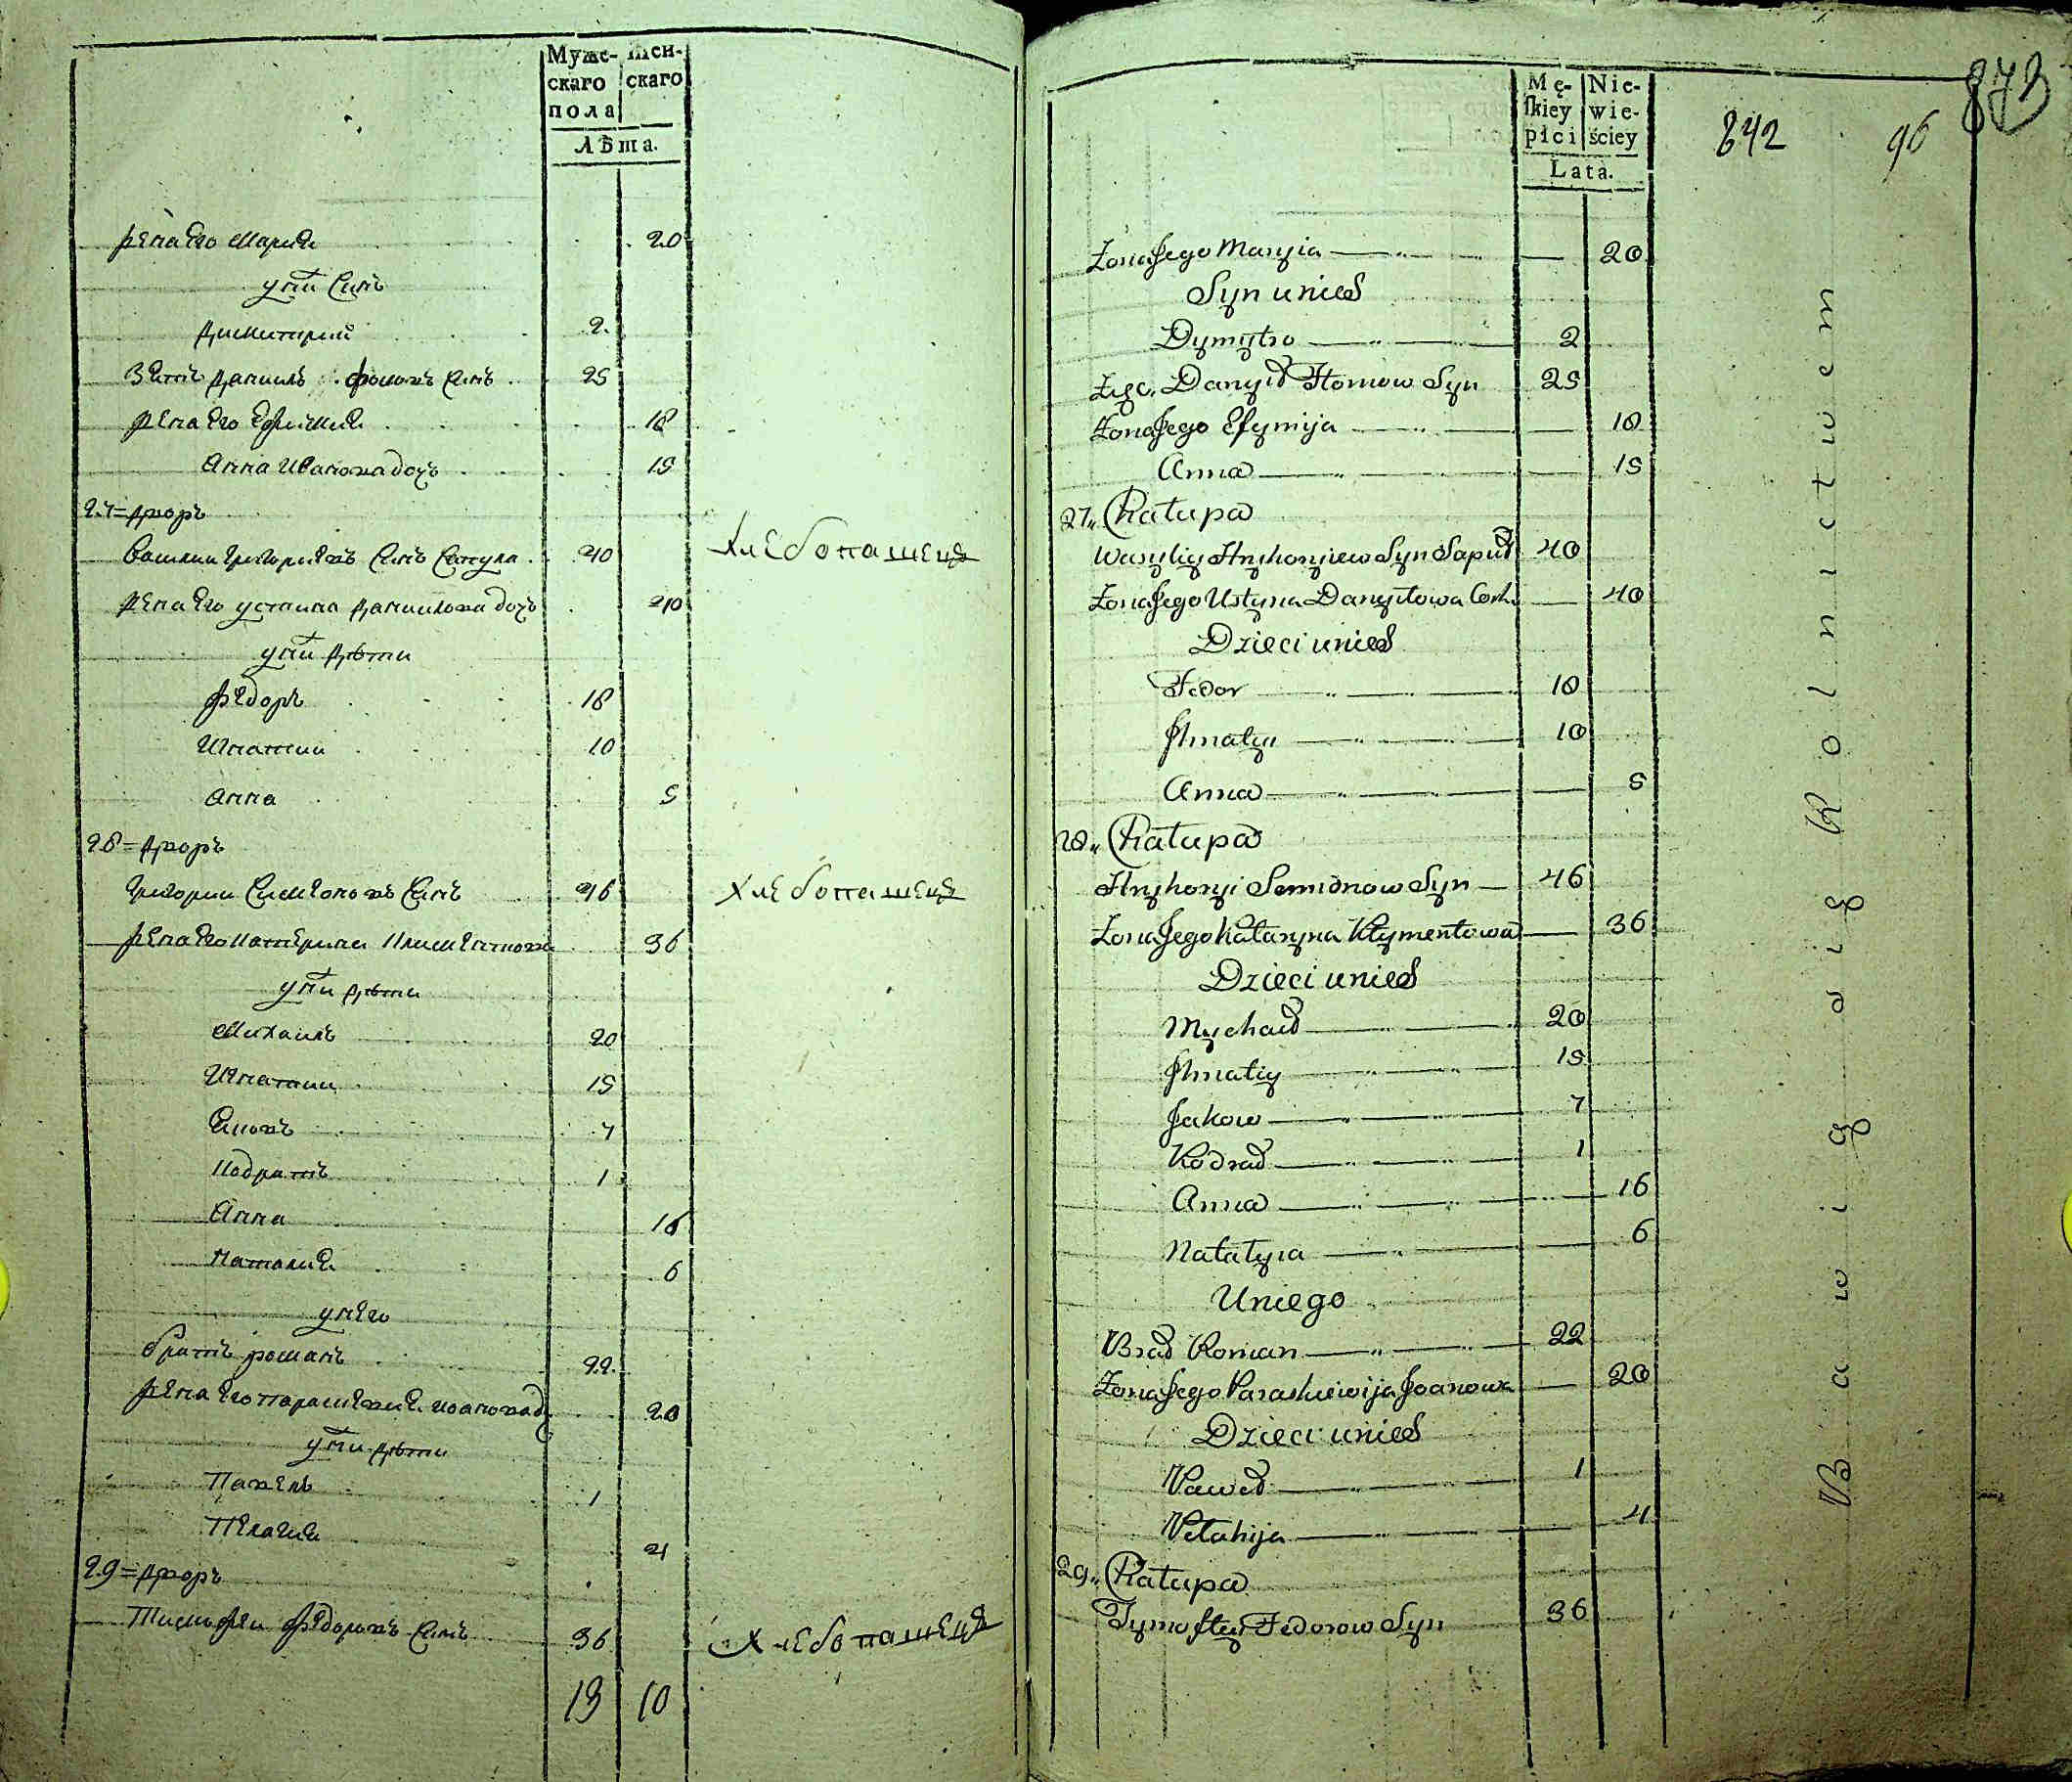 Муже-
скаго
пола
жен-
скаго
Лѣта.
жена Его Мария 20
у них Синъ
Димитрий 2.
Зять Даниилъ Фомовъ Синъ 25
жена Его Ефимия 18
Анна Иванова дочь 15
27= дворъ
Василии Григориевъ Синъ Сапула 40 Хлебопашецъ
жена Его устина Даниилова дочь 40
у них дѣти
Федоръ 18
Игнатии 10
Анна 5
28= дворъ
Григории Симеоновъ Синъ 46 Хлебопашецъ
жена Его Катерина Климентова 36
у них дѣти
Михаилъ 20
Игнатии 15
Яковъ 7
Кодратъ 1
Анна 16
Наталия 6
у него
братъ романъ 22.
жена Его параскевия иоанова д 20
у них дѣти
Павелъ 1
Пелагия 4
29= дворъ
Тимофеи Федоровъ Синъ 36 Хлебопашецъ
13 10
Mę-
skiey
płci
Nie-
wie-
ściey
Lata.
842 96 873
Żona Jego Maryia 20
Syn u nich
Dymytro 2
Zięć Danyił Homow Syn 25
Żona Jego Efymija 18
Anna 15
27„ Chałupa
Wasyliy Hryhoryiew Syn Sapuł 40
Żona Jego Ustyna Danyłowa Cork. 40
Dzieci u nich
Fedor 18
Ihnatyi 10
Anna 5
28„ Chałupa
Hryhoryi Semionow Syn 46
Żona Jego Kataryna Kłymentowa 36
Dzieci u nich
Mychaił 20
Ihnatiy 15
Jakow 7
Kodrad 1
Anna 16
Natalyia 6
U niego
Brad Roman 22
Żona Jego Paraskiewija Joanowa 20
Dzieci u nich
Paweł 1
Pełahija 4
29„ Chałupa
Tymoftey Fedorow Syn 36
Bawią się Rolnictwem